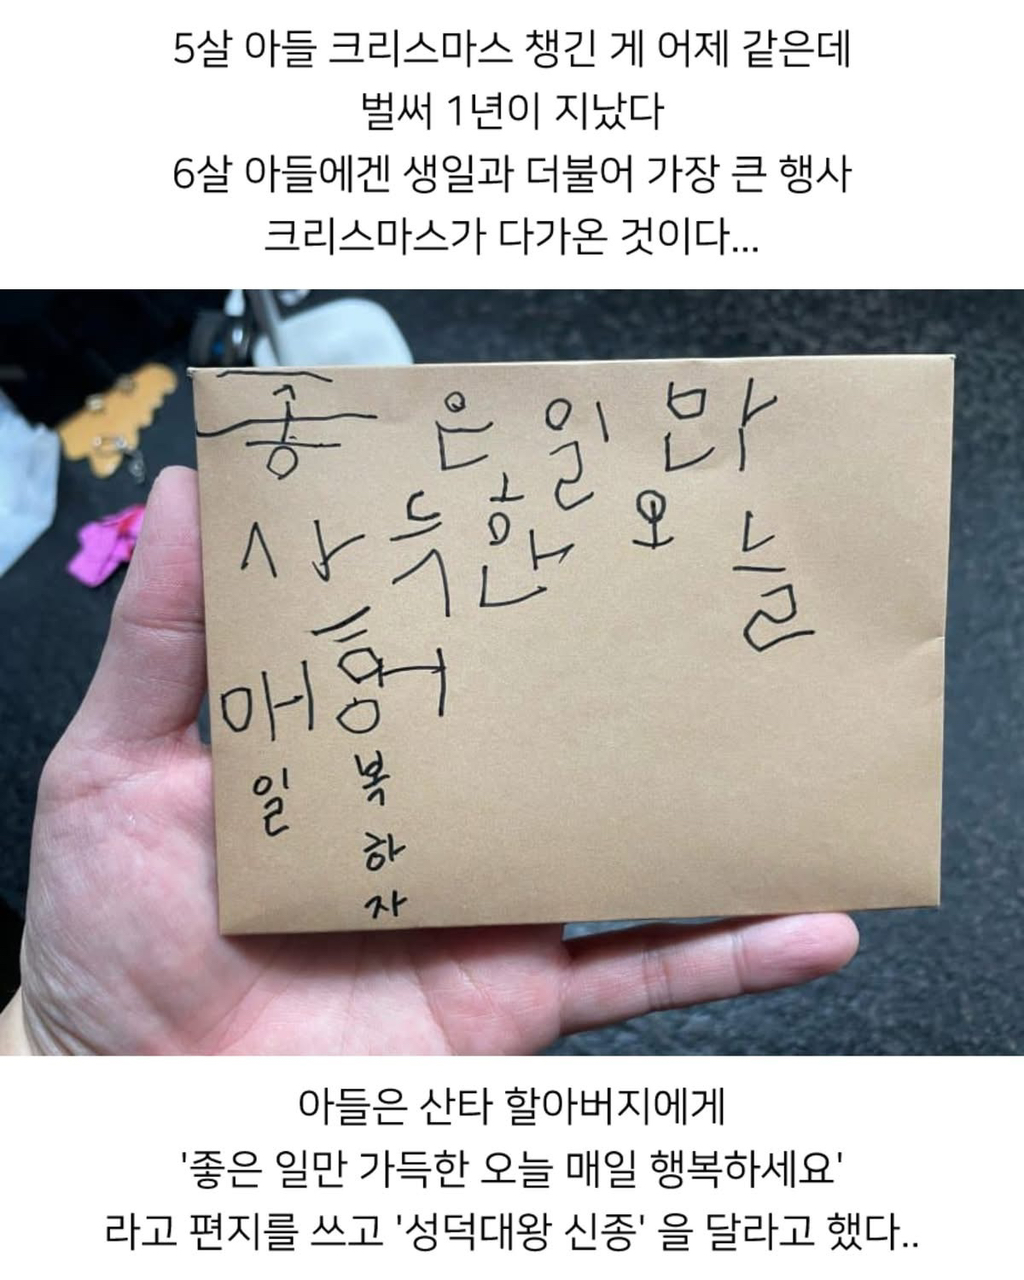 5살 아들 크리스마스 챙긴 게 어제 같은데
벌써 1년이 지났다
6살 아들에겐 생일과 더불어 가장 큰 행사
크리스마스가 다가온 것이다...
은 일만
한 오늘
일 복
하
자
아들은 산타 할아버지에게
'좋은 일만 가득한 오늘 매일 행복하세요'
라고 편지를 쓰고 '성덕대왕 신종' 을 달라고 했다..